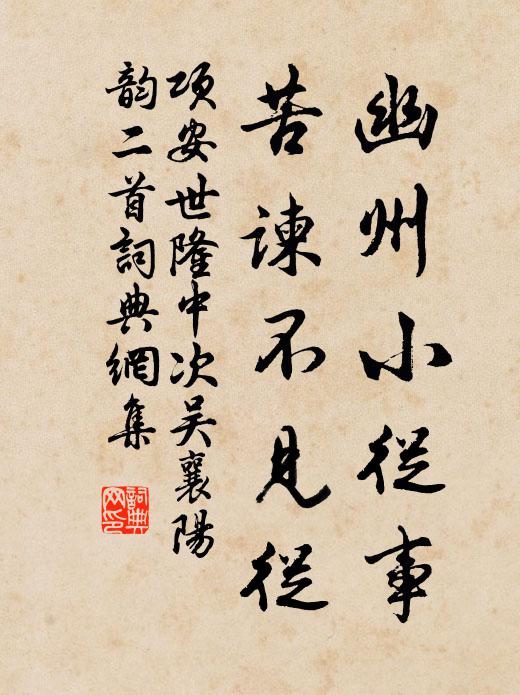 幽州小從事
苦諫不見從
項安世隆中次吴襄陽
韵二首詞典網集
詞典網印